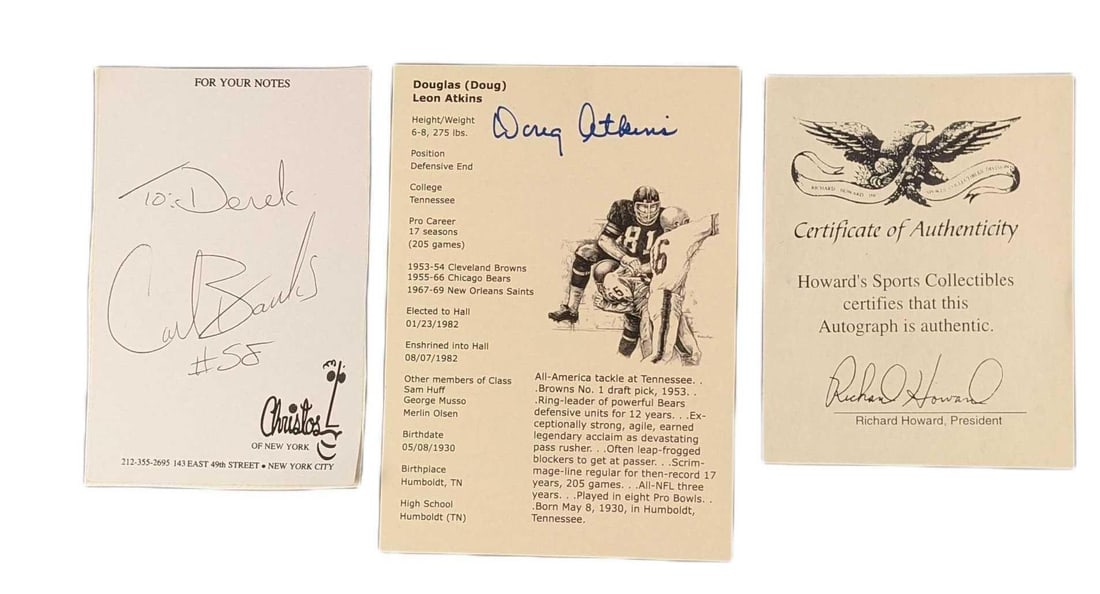 FOR YOUR NOTES
To: Derek
Carl Banks
#58
Christos
OF NEW YORK
212-355-2695 143 EAST 49th STREET • NEW YORK CITY
Douglas (Doug)
Leon Atkins
Doug Atkins
Height/Weight
6-8, 275 lbs.
Position
Defensive End
College
Tennessee
Pro Career
17 seasons
(205 games)
1953-54 Cleveland Browns
1955-66 Chicago Bears
1967-69 New Orleans Saints
Elected to Hall
01/23/1982
Enshrined into Hall
08/07/1982
Other members of Class
Sam Huff
George Musso
Merlin Olsen
Birthdate
05/08/1930
Birthplace
Humboldt, TN
High School
Humboldt (TN)
81
All-America tackle at Tennessee. .
.Browns No. 1 draft pick, 1953. .
.Ring-leader of powerful Bears
defensive units for 12 years. . .Ex-
ceptionally strong, agile, earned
legendary acclaim as devastating
pass rusher. . .Often leap-frogged
blockers to get at passer. . .Scrim-
mage-line regular for then-record 17
years, 205 games. . .All-NFL three
years. . .Played in eight Pro Bowls. .
.Born May 8, 1930, in Humboldt,
Tennessee.
RICHARD HOWARD INC SPORTS COLLECTIBLES DIVISION
Certificate of Authenticity
Howard's Sports Collectibles
certifies that this
Autograph is authentic.
Richard Howard
Richard Howard, President